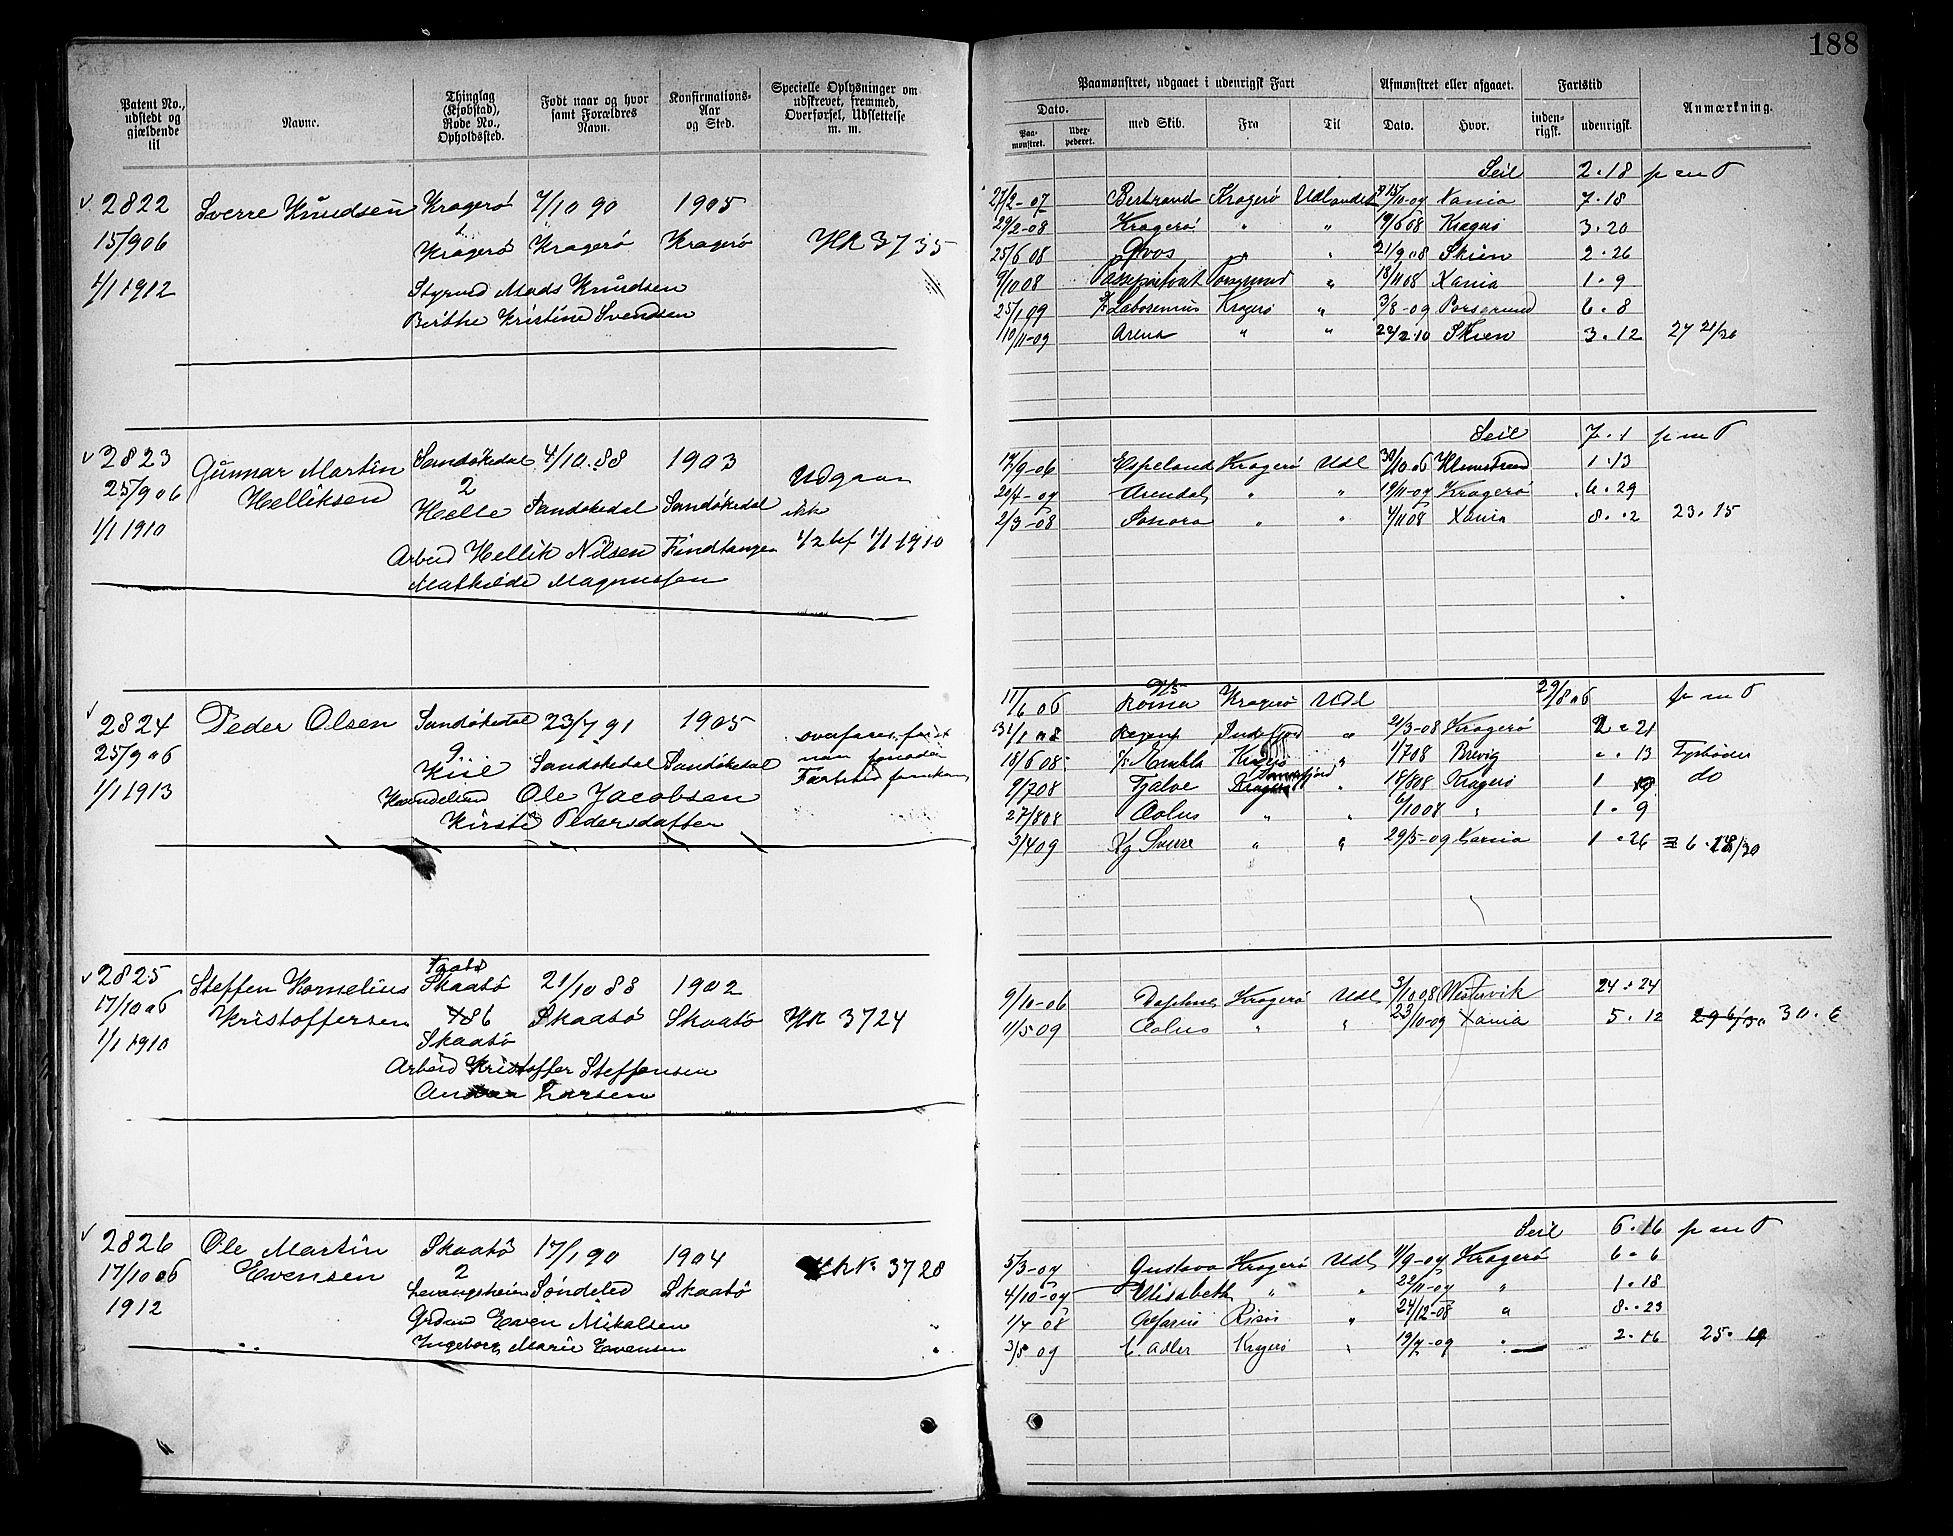 188
Patent No., udstedt og gjældende til
Navne.
Thinglag (Kjøbstad), Rode No., Opholdssted.
Født naar og hvor samt Forældres Navn.
Konfirmations-Aar og Sted.
Specielle Oplysninger om udskrevet, fremmed, Overførsel, Udslettelse m. m.
Paamønstret, udgaaet i udenrigsk Fart
Afmønstret eller afgaaet.
Fartstid
Anmærkning.
Dato.
Paa-mønstret.
Udex-pederet.
med Skib.
Fra
Til
Dato.
Hvor.
inden-rigsk.
udenrigsk.
Seil 2.18
2822 Sverre Knudsen Kragerø 7/10 90 1905
15/9 06 Kragerø Kragerø Kragerø HR 3735
1/1 1912 Styrmd Mads Knudsen
Birthe Kristine Svendsen
27/2-07 Bertrand Kragerø Udlandet 15/10-07 Xania 7.18
29/2-08 Kragerø " " 19/6 08 Kragerø 3.20
25/6 08 " " 21/9 08 Skien 2.26
9/10 08 Porsgrund " 18/11 08 Xania 1.9
25/1 09 Kragerø " 3/8-09 Porsgrund 6.8
10/11-09 Arena " " 22/2 10 Skien 3.12 27 21/30
Seil 7.1
2823 Gunnar Martin Sandøkedal 4/10.88 1903 Udgaar
25/9 06 Helliksen 2
1/1 1910 Helle Sandøkedal Sandøkedal ikke
Arbeid Hellik Nilsen Findtangen 1/2 1/1 1910
Mathilde Magnussen
17/9-06 Espeland Kragerø Udl 30/10 06 1.13
20/4-07 Arendal " " 19/11-07 Kragerø 6.29
2/3-08 Sonora " " 4/11 08 Xania 8.2 23.15
11/6 06 Roma Kragerø Udl 29/8 06
2824 Peder Olsen Sandøkedal 23/7 91 1905
25/9 06 9 Kiil Sandøkedal Sandøkedal
1/1 1913 Ole Jacobsen
Kirsti Pedersdatter
31/1 08 Regent " 21/3-08 Kragerø 2.21
18/6 08 Embla Kragerø " 1/7 08 Brevig ".13
9/7 08 Fjalve " 18/8 08 Kragerø 1 do
27/8 08 Aolus " " 6/10 08 " 1.9
3/4 09 Sverre " " 29/5-09 Xania 1.26 = 6.18/30
2825 Steffen Kornelius Skaatø 21/10 88 1902
17/10 06 Kristoffersen 86 Skaatø Skaatø HR 3724
1/1 1910 Skaatø
Arbeid Kristoffer Steffensen
Larsen
9/10-06 Daphne Kragerø Udl 3/10 08 Westervik 24.24
1/5 09 Aolus " " 23/10-09 Xania 5.12 29 6/30 30.6
Seil 6.16
2826 Ole Martin Skaatø 17/1 90 1904
17/10 06 Evensen 2 3728
1912 Levangsheien Søndeled Skaatø
Even Mikalsen
Ingeborg Marie Evensen
5/3-07 Gustava Kragerø Udl 11/9-07 Kragerø 6.6
4/10-07 Elisabeth " " 22/11-07 " 1.18
1/4 08 Risør " 24/12-08 " 8.23
3/5 09 Adler Kragerø " 19/7-09 " 2.16 25.19